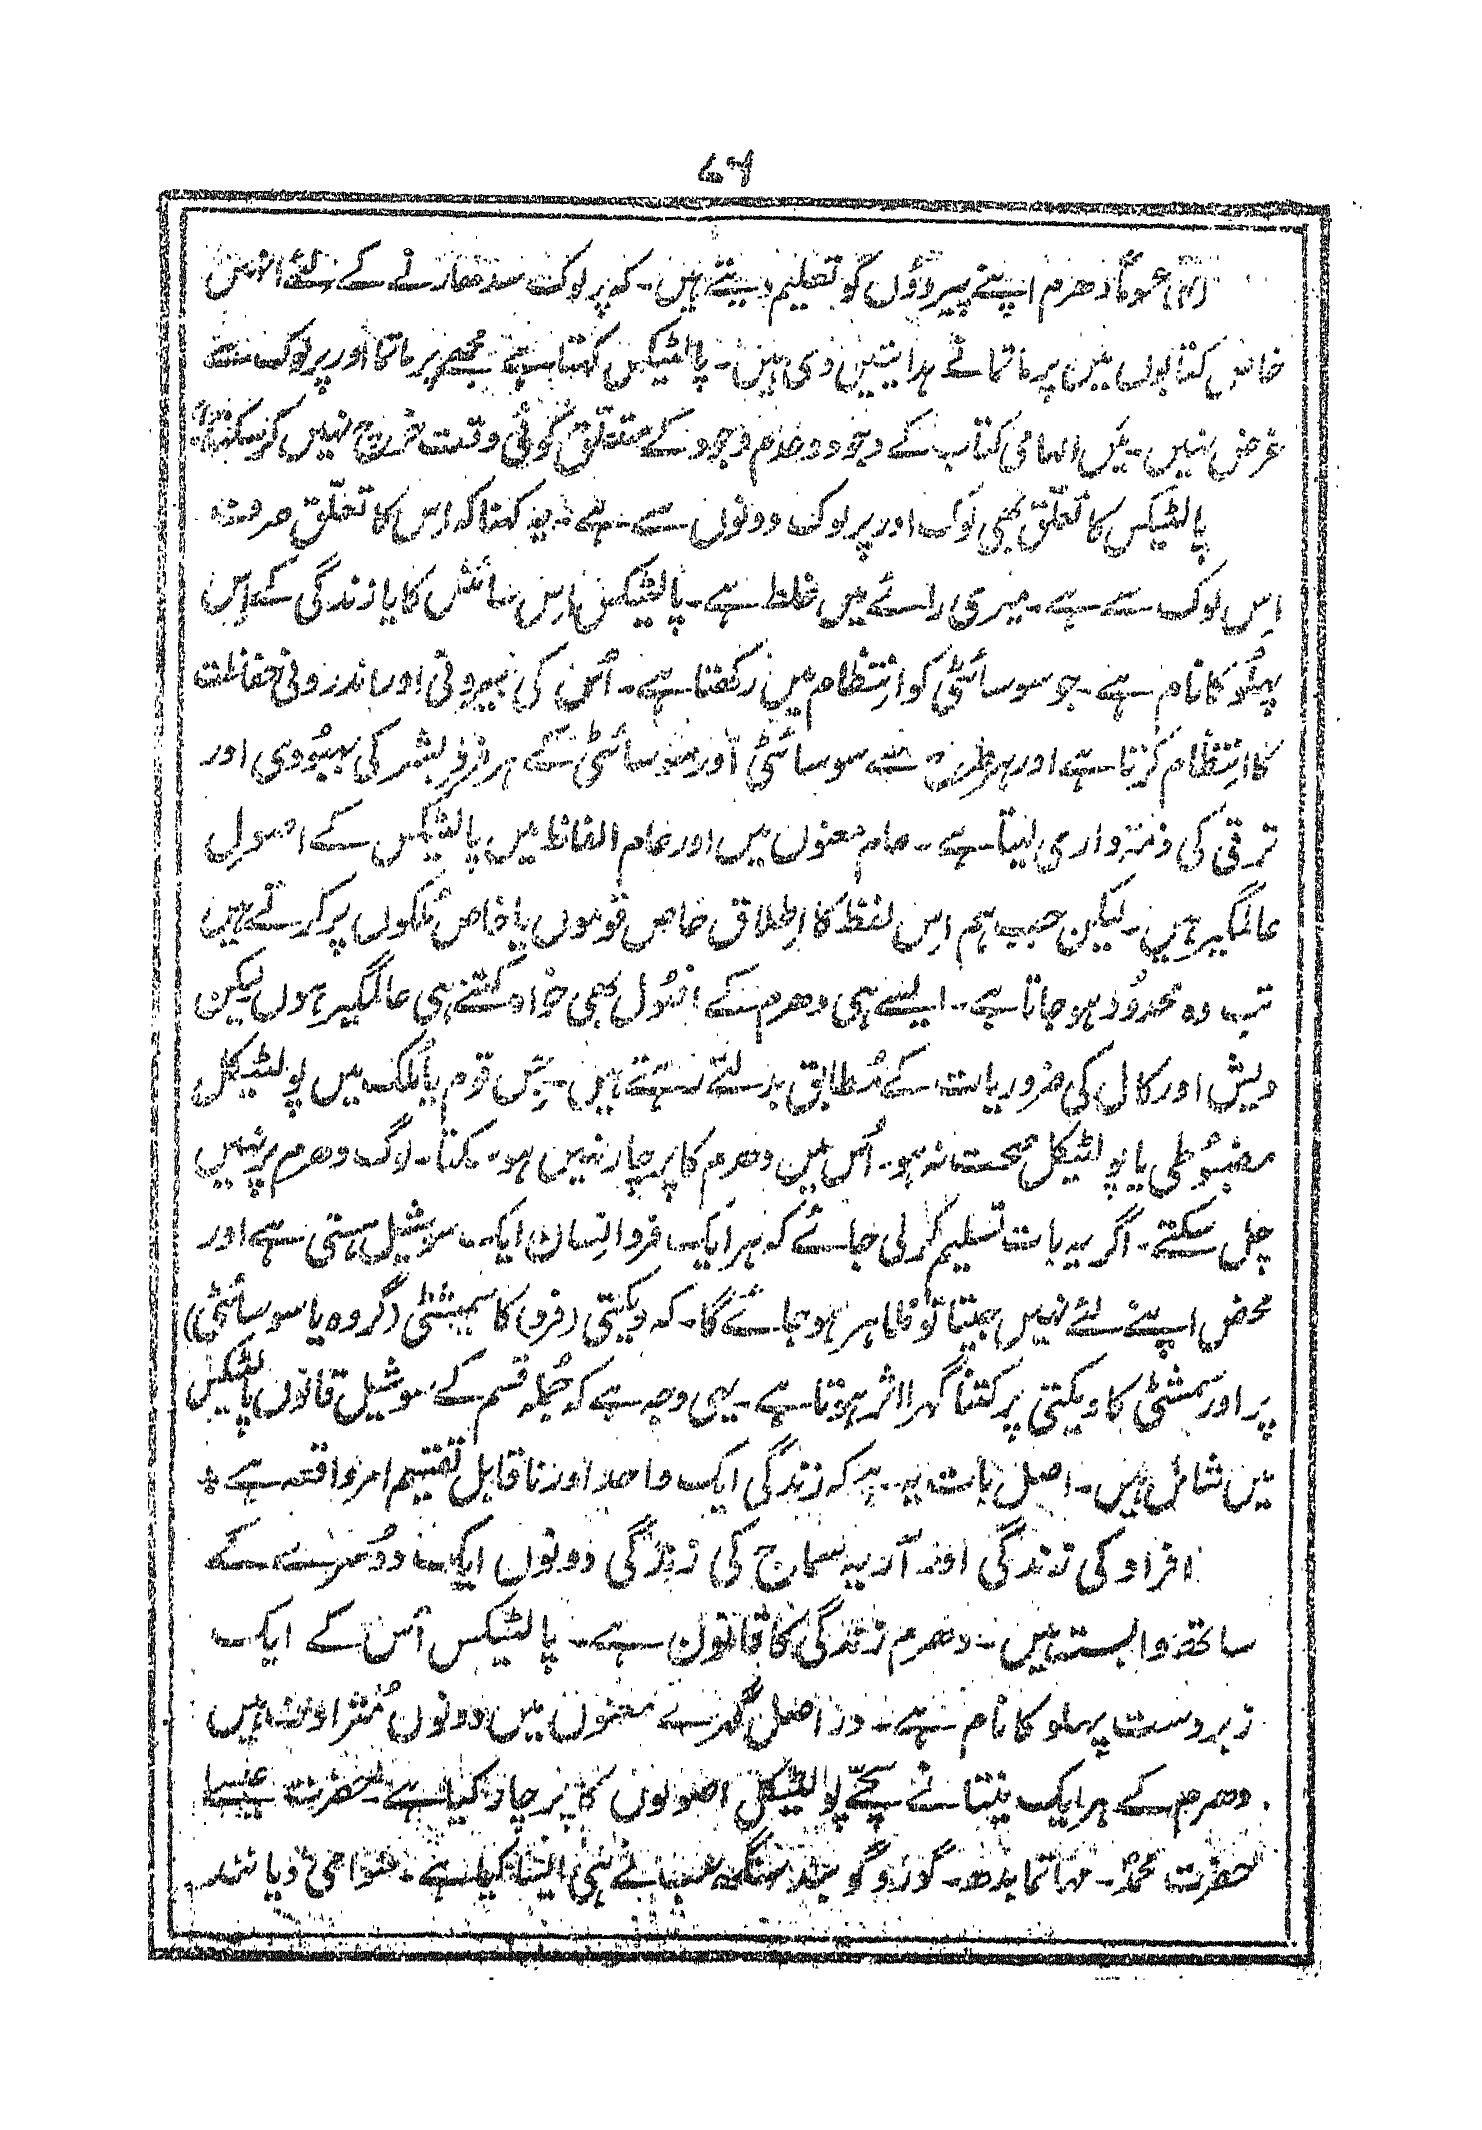 ۷۶
(۴) عموماً دھرم اپنے پیروؤں کو تعلیم دیتے ہیں۔ کہ پرلوک سدھارنے کے لئے انہیں
خاص کتابوں میں پرماتما نے ہدایتیں دی ہیں۔ پالٹیکس کہتا ہے مجھے پرماتما اور پرلوک سے
غرض نہیں۔ میں الہامی کتاب کے وجود و عدم وجود کے متعلق کوئی وقت خرچ نہیں کر سکتا۔
پالٹیکس کا تعلق بھی لوک اور پرلوک دونوں سے ہے۔ یہ کہنا کہ اس کا تعلق صرف
اِس لوک سے ہے۔ میری رائے میں غلط ہے۔ پالٹیکس اس سائنس کا یا زندگی کے اِس
پہلُو کا نام ہے۔ جو سوسائٹی کو انتظام میں رکھتا ہے۔ اُس کی بیرونی اور اندرونی حفاظت
کا انتظام کرتا ہے اور ہر طرح سے سوسائٹی اور سوسائٹی کے ہر فرد بشر کی بہبُودی اور
ترقی کی ذمہ واری لیتا ہے۔ عام معنوں میں اور عام الفاظ میں پالٹیکس کے اصول
عالمگیر ہیں۔ لیکن جب ہم اِس لفظ کا اِطلاق خاص قوموں یا خاص مُلکوں پر کرتے ہیں
تب وہ محدُود ہو جاتا ہے۔ ایسے ہی دھرم کے اصُول بھی خواہ کتنے ہی عالمگیر ہوں لیکن
دیش اور کال کی ضروریات کے مُطابق بدلتے رہتے ہیں۔ جس قوم یا مُلک میں پولٹیکل
مضبُوطی یا پولٹیکل صحت نہ ہو۔ اُس میں دھرم کا پرچار نہیں ہو سکتا۔ لوگ دھرم پر نہیں
چل سکتے۔ اگر یہ بات تسلیم کر لی جائے کہ ہر ایک فرد انسان ایک سوشیل ہستی ہے اور
محض اپنے لئے نہیں جیتا تو ظاہر ہو جائے گا۔ کہ ویکتی (فرد) کا سمیشٹی (گروہ یا سوسائٹی)
پر اور سمشٹی کا ویکتی پر کتنا گہرا اثر ہوتا ہے۔ یہی وجہ ہے کہ جُملہ قسم کے سوشیل قانون پالٹیکس
میں شامل ہیں۔ اصل بات یہ ہے کہ زندگی ایک واحد اور ناقابل تقسیم امر واقعہ ہے *
افراد کی زندگی اور آریہ سماج کی زندگی دونوں ایک دُوسرے کے
ساتھ وابستہ ہیں۔ دھرم زندگی کا قانون ہے۔ پالٹیکس اُس کے ایک
زبردست پہلو کا نام ہے۔ در اصل گہرے معنوں میں دونوں مُترادف ہیں
دھرم کے ہر ایک نیتا نے سچے پولٹیکل اصولوں کا پرچار کیا ہے۔ حضرت عیسیٰ
حضرت محمدؐ۔ مہاتما بدھ۔ گورو گوبند سنگھ سب نے ہی ایسا کیا ہے۔ سوامی دیانند